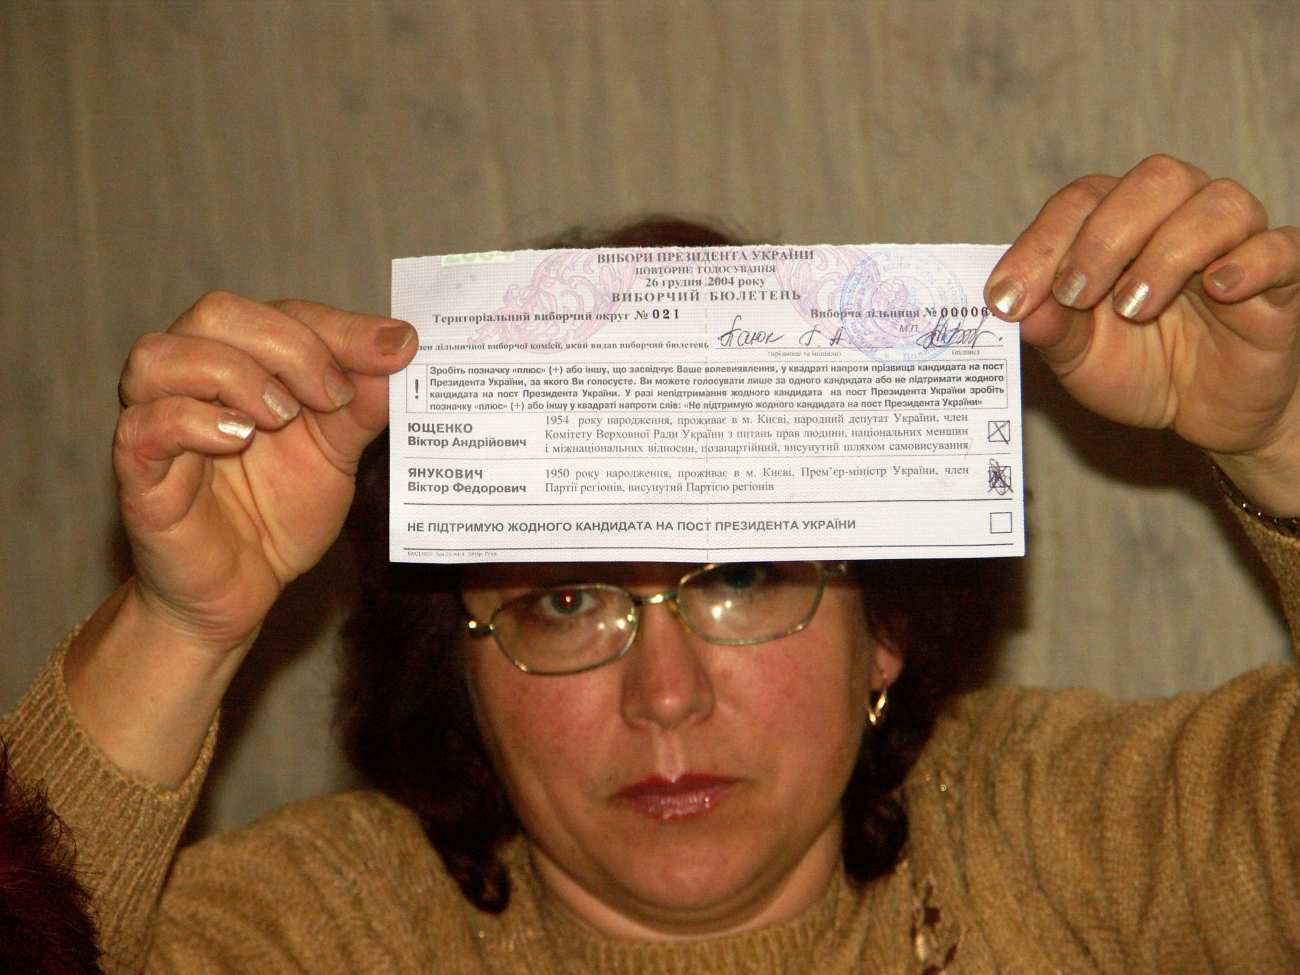 2004
ВИБОРИ ПРЕЗИДЕНТА УКРАЇНИ
ПОВТОРНЕ ГОЛОСУВАННЯ
26 грудня 2004 року
ВИБОРЧИЙ БЮЛЕТЕНЬ
Територіальний виборчий округ № 021 Виборча дільниця № 00006
лен дільничної виборчої комісії, який видав виборчий бюлетень
(прізвище та ініціали) М.П. (підпис)
! Зробіть позначку «плюс» (+) або іншу, що засвідчує Ваше волевиявлення, у квадраті напроти прізвища кандидата на пост
Президента України, за якого Ви голосуєте. Ви можете голосувати лише за одного кандидата або не підтримати жодного
кандидата на пост Президента України. У разі непідтримання жодного кандидата на пост Президента України зробіть
позначку «плюс» (+) або іншу у квадраті напроти слів: «Не підтримую жодного кандидата на пост Президента України»
ЮЩЕНКО
Віктор Андрійович
1954 року народження, проживає в м. Києві, народний депутат України, член
Комітету Верховної Ради України з питань прав людини, національних меншин
і міжнаціональних відносин, позапартійний, висунутий шляхом самовисування
ЯНУКОВИЧ
Віктор Федорович
1950 року народження, проживає в м. Києві, Прем’єр-міністр України, член
Партії регіонів, висунутий Партією регіонів
НЕ ПІДТРИМУЮ ЖОДНОГО КАНДИДАТА НА ПОСТ ПРЕЗИДЕНТА УКРАЇНИ